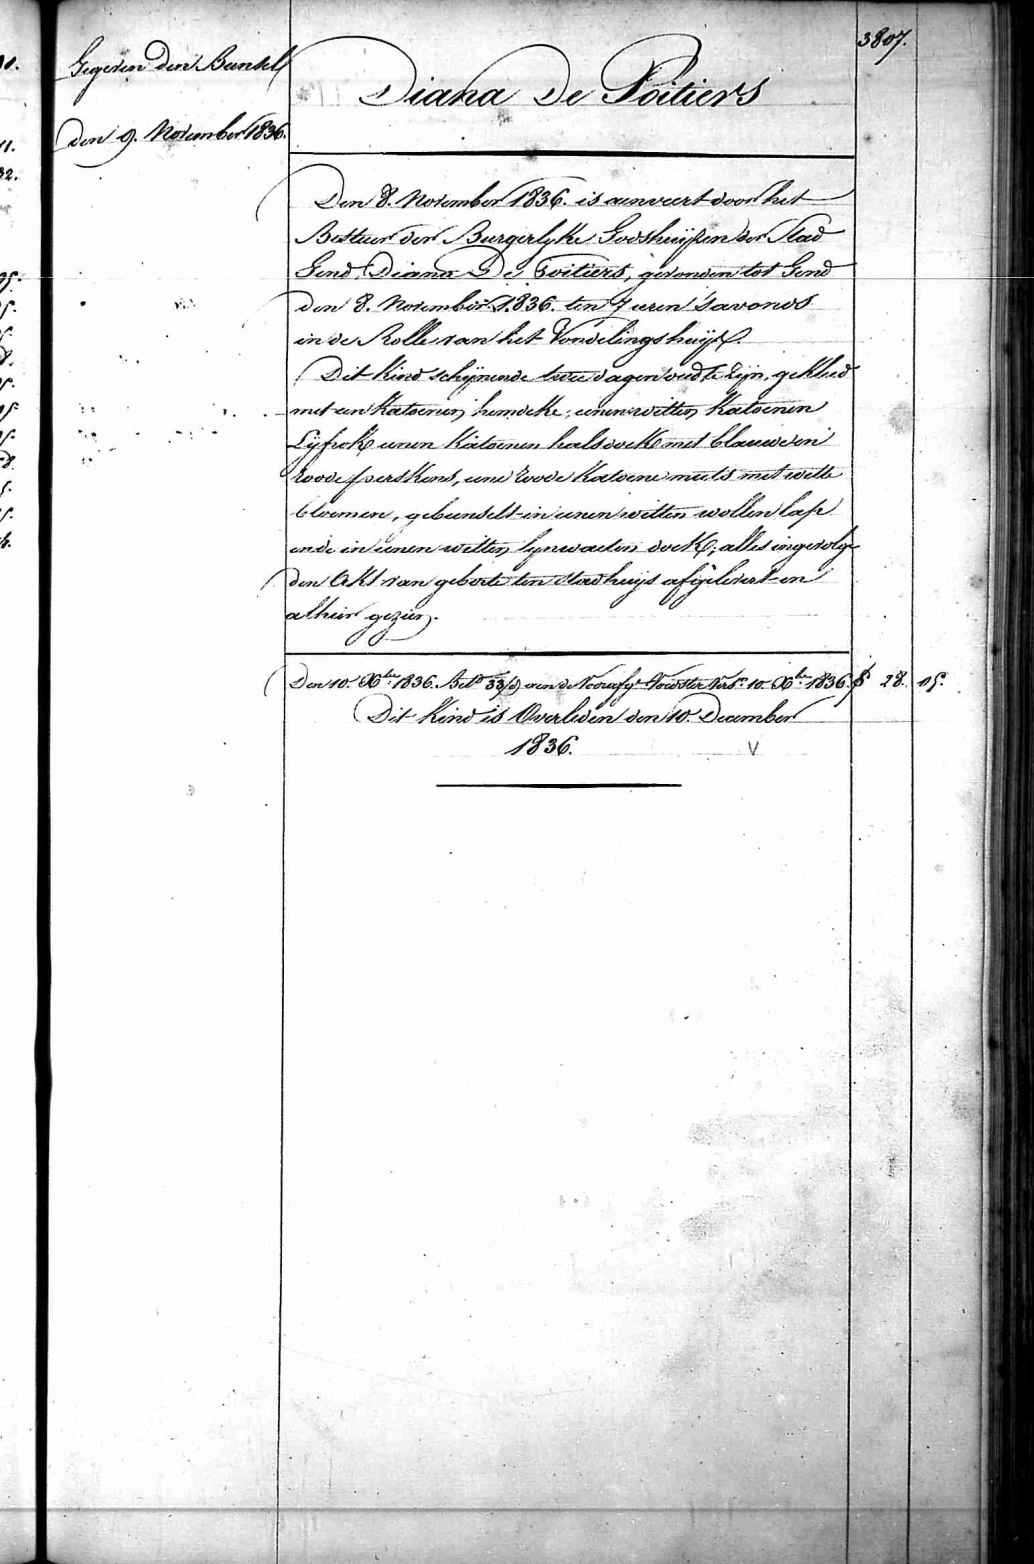 3807.
Gegeven den Bunsel
den 9. November 1836.
Diana De Poitiers
Den 8. November 1836. is aenveert door het
Bestier der Burgerlyke Godshuijsen der Stad
Gend, Diana De Poitiers, gevonden tot Gend
den 8. November 1836. ten 7 uren s'avonds
in de Rolle van het Vondelingshuijs.
Dit kind schijnende twee dagen oud te zijn, gekleed
met een katoenen hemdeke, eenen witten katoenen
Lijfrok eenen katoenen halsdoek met blauw en
roode perskens, eene roode katoene muts met witte
bloemen, gebunselt in eenen witten wollen lap
ende in eenen witten lynwaeten doek; alles ingevolge
den Akt van geboorte ten Stadhuijs afgelevert en
alhier gezien.
Den 10. Xber 1836. Bet. 33 aen de Voorster 10. Xber 1836. f 28. 05.
Dit kind is Overleden den 10. December
1836.
V